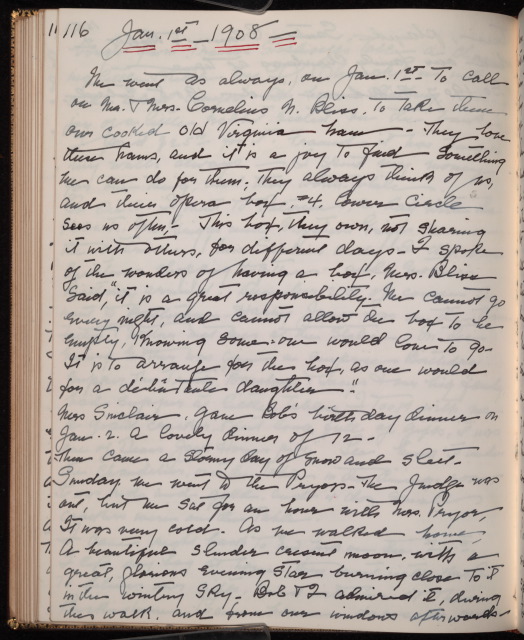 116 Jan. 1st - 1908 -
We went as always, on Jan. 1st - To call
on Mr. & Mrs. Cornelius N. Bliss. To take them
our cooked old Virginia ham - They love
these hams, and it is a joy to find something
we can do for them; They always think of us,
and their opera box, #4, lower Circle
sees us often, - This box, they own, not sharing
it with others, for different days - I spoke
of the wonders of having a box, Mrs. Bliss
said, "it is a great responsibility. We cannot go
every night, and cannot allow the box to be
empty, knowing some-one would love to go -
It is to arrange for the box, as one would
for a debutante daughter".
Mrs Sinclair, gave Bob's birthday dinner on
Jan. 2. A lovely dinner of 12 -
Then came a stormy day of snow and sleet -
Sunday we went to the Pryors. The Judge was
out, but we sat for an hour with Mrs. Pryor,
It was very cold. As we walked home,
A beautiful slender cresent moon, with a
great, glorious evening star burning close to it
in the wintry sky - Bob & I admired it, during
the walk, and from our windows afterwards -